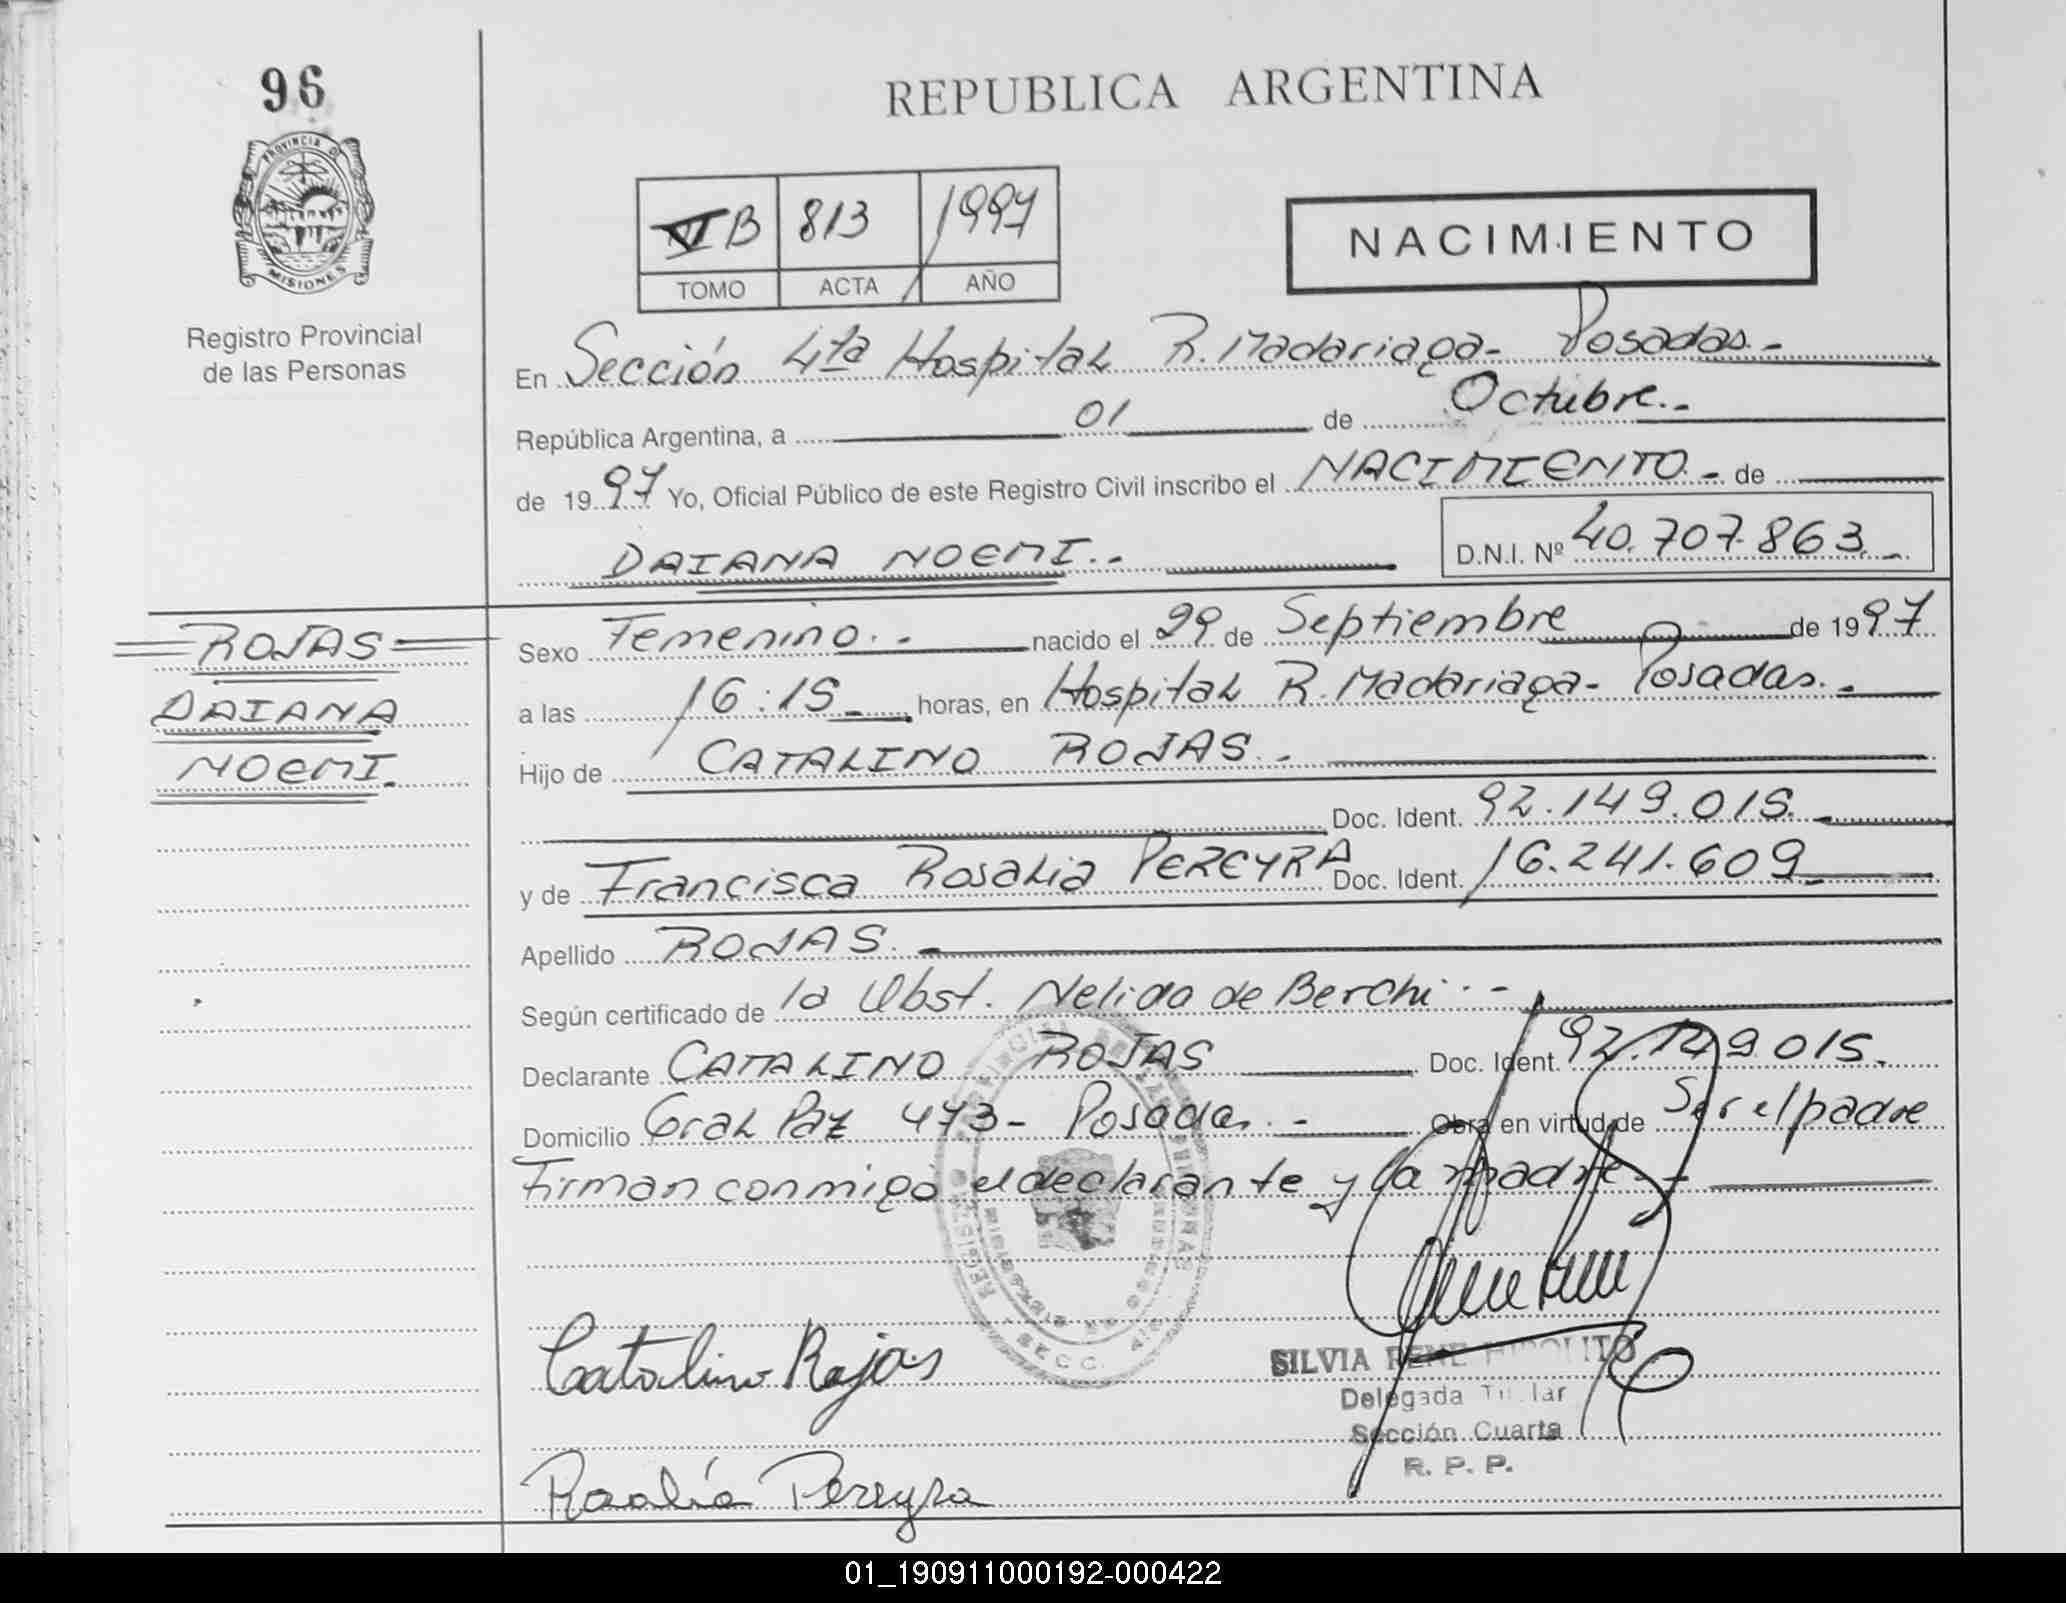 96
REPUBLICA ARGENTINA
PROVINCIA DE
MISIONES
Registro Provincial
de las Personas
VI B 813 1997
TOMO ACTA AÑO
NACIMIENTO
En Sección 4ta Hospital R. Madariaga - Posadas.-
República Argentina, a 01 de Octubre.-
de 1997 Yo, Oficial Público de este Registro Civil inscribo el NACIMIENTO.- de
DAIANA NOEMI.- D.N.I. Nº 40.707.863.-
ROJAS
DAIANA
NOEMI.
Sexo Femenino.- nacido el 29 de Septiembre de 1997
a las 16:15 horas, en Hospital R. Madariaga - Posadas.-
Hijo de CATALINO ROJAS.-
Doc. Ident. 92.149.015.-
y de Francisca Rosalia PEREYRA Doc. Ident. 16.241.609
Apellido ROJAS.-
Según certificado de la Obst. Nelida de Berchi.-
Declarante CATALINO ROJAS Doc. Ident. 92.149.015.
Domicilio Gral Paz 473 - Posadas.- Obra en virtud de Ser el padre
Firman conmigo el declarante y la madre.-
Catalino Rojas
SILVIA RENE HIPOLITO
Delegada Titular
Sección Cuarta
R. P. P.
Rosalía Pereyra
01_190911000192-000422